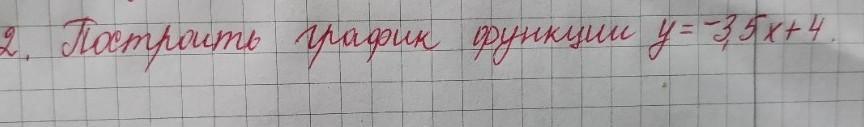 2. Построить график функции y = -3,5x + 4.